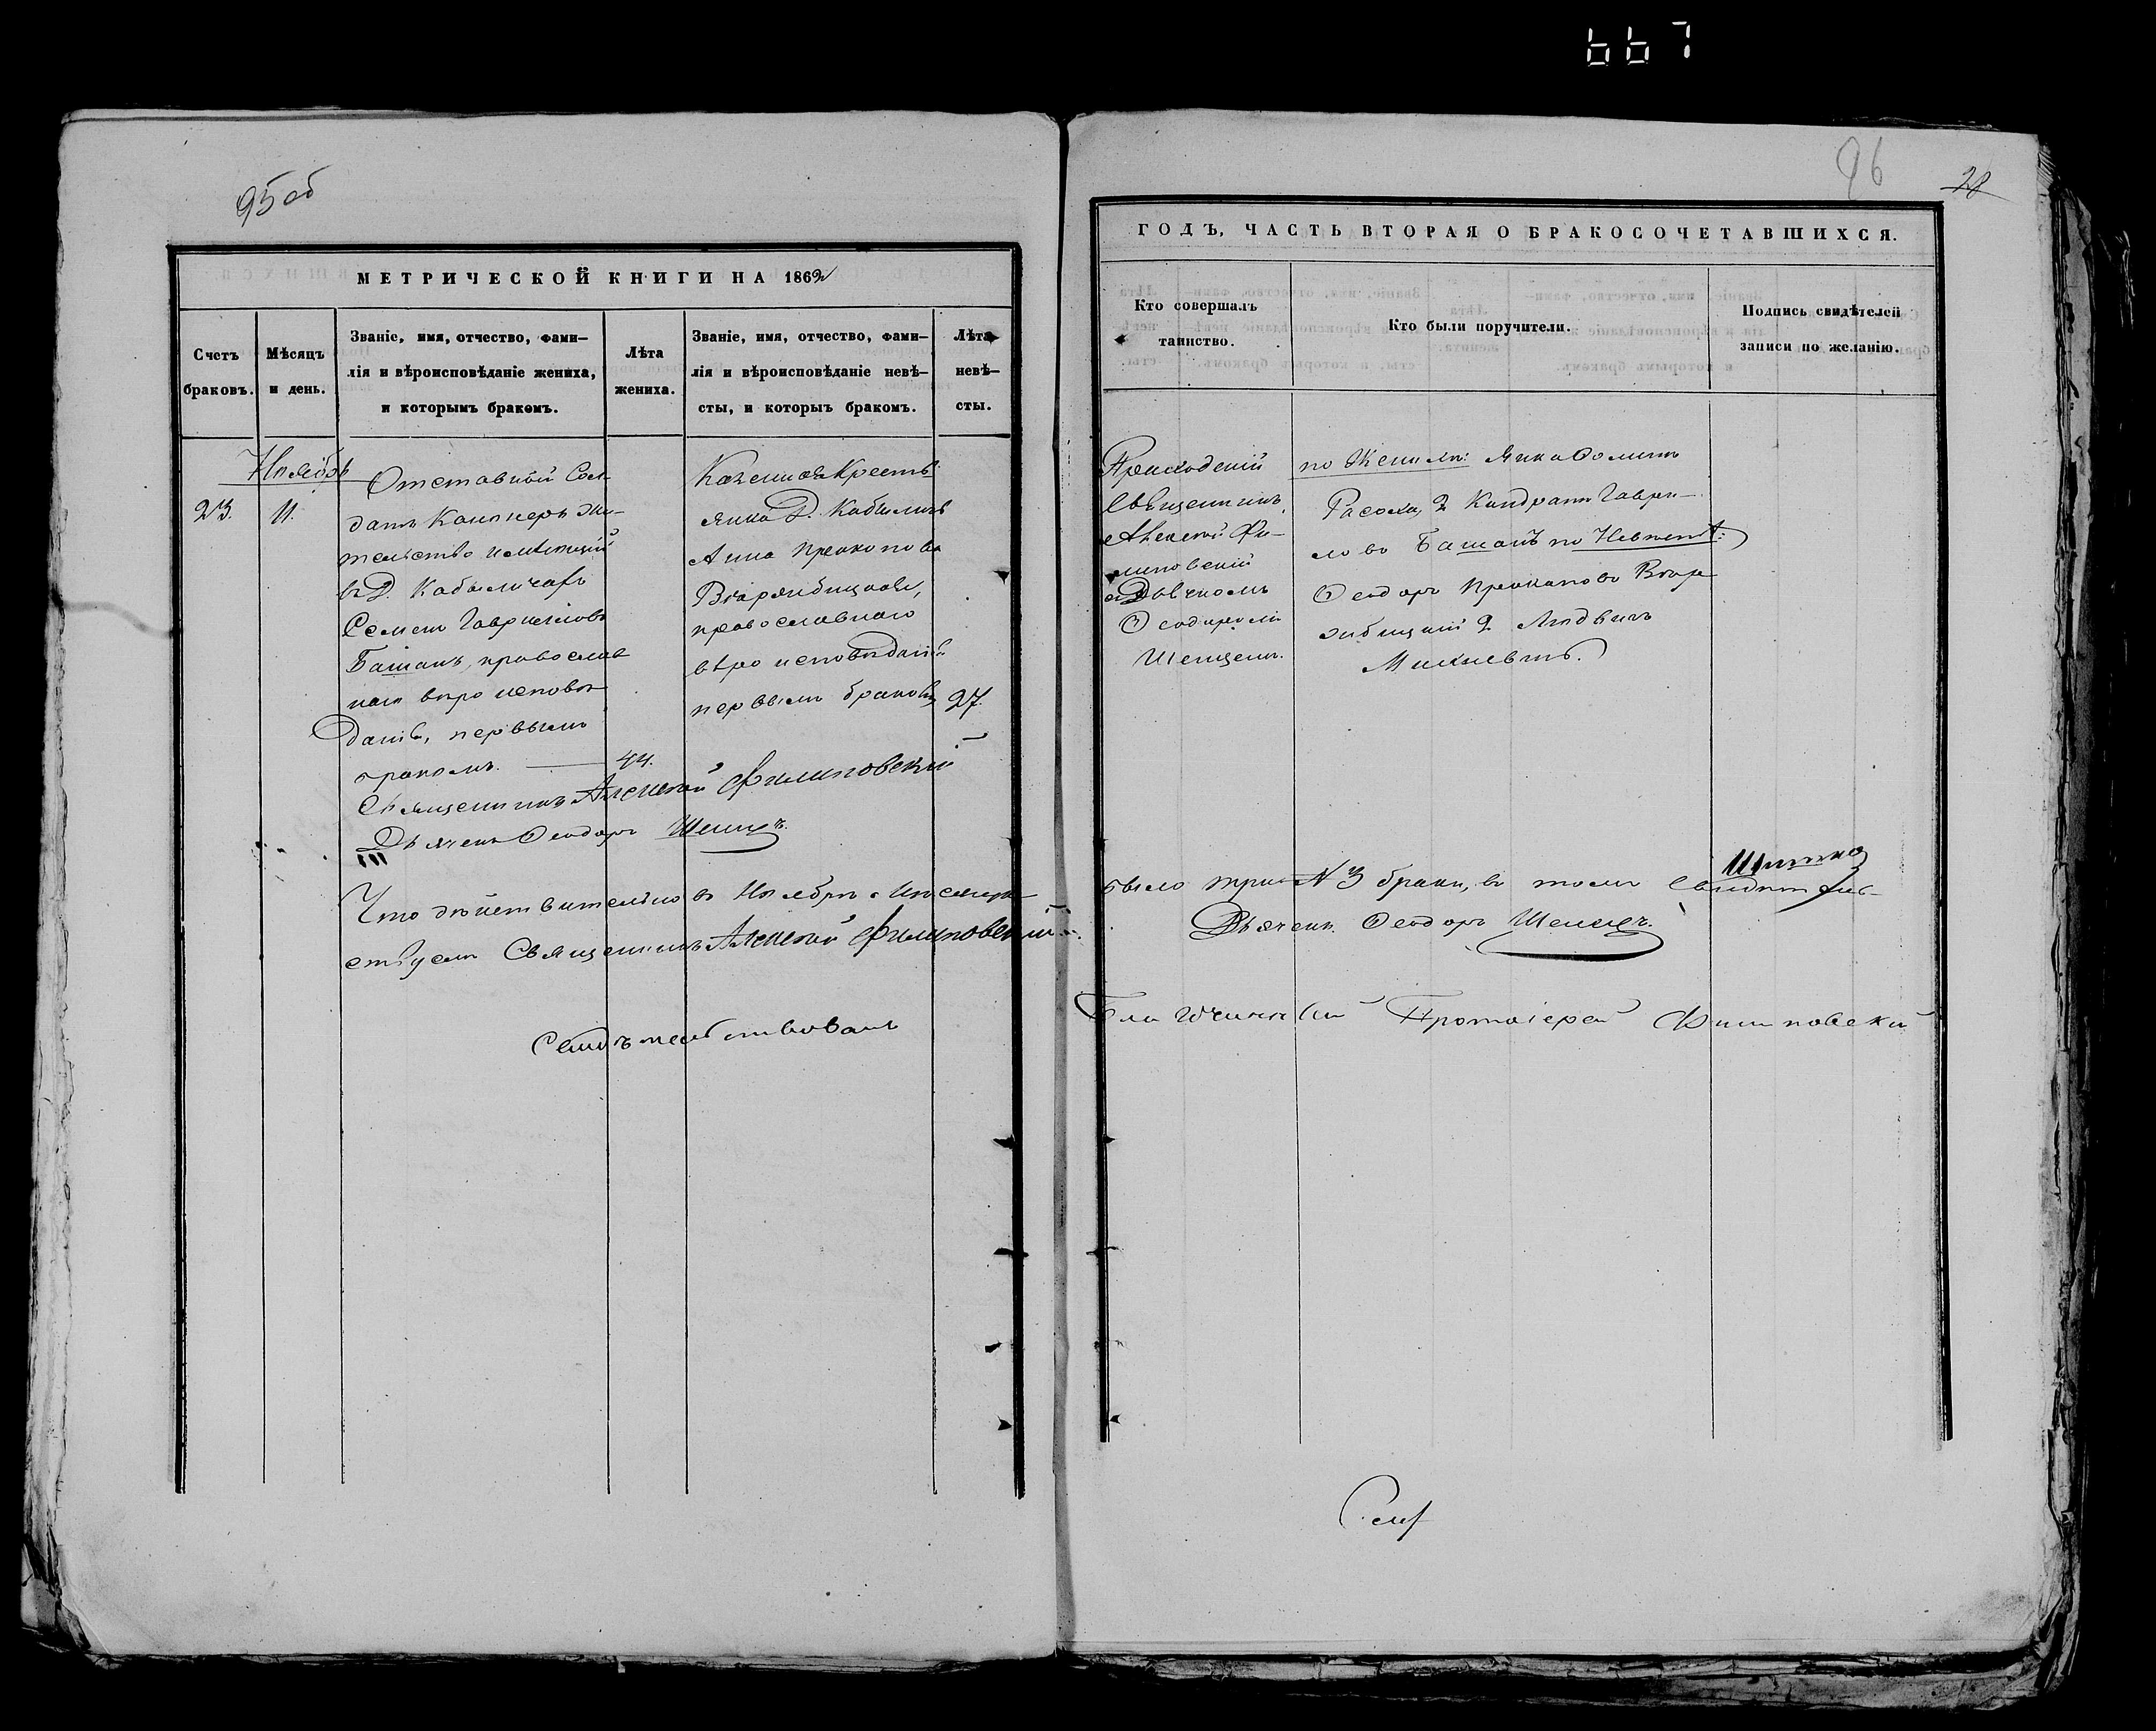 667
95 об
МЕТРИЧЕСКОЙ КНИГИ НА 1862
Счетъ браковъ.
Мѣсяцъ и день.
Званіе, имя, отчество, фами-
лія и вѣроисповѣданіе жениха,
и которымъ бракомъ.
Лѣта жениха.
Званіе, имя, отчество, фами-
лія и вѣроисповѣданіе невѣ-
сты, и которыъ бракомъ.
Лѣта невѣ-
сты.
Ноябрь
23.
11.
Отставной Сол-
датъ Канонеръ жи-
тельство имѣющій
въ Д. Кабыличахъ
Семенъ Гавриловъ
Башанъ, православ
наго вѣроисповѣ
данія, первымъ
бракомъ. — 44.
Казенная Крестъ-
янка Д. Кабыличъ
Анна Прокопова
православнаго
вѣроисповѣданія
первымъ бракомъ
27.
Священникъ Алексѣй Филиповскій
Дьячекъ Ѳеодоръ Шемецъ.
Что дѣйствительно въ Ноябрѣ мѣсяцѣ
ствуемъ Священникъ Алексѣй Филиповскій
Свидѣтельствовалъ
96
28
ГОДЪ, ЧАСТЬ ВТОРАЯ О БРАКОСОЧЕТАВШИХСЯ.
Кто совершалъ
таинство.
Кто были поручители.
Подпись свидѣтелей
записи по желанію.
Приходскій
Священникъ
Алексѣй Фи-
липовскій
съ Дьячкомъ
Ѳеодоромъ
Шемецемъ.
по Женихѣ: Якив Ѳоминъ
Расоха, 2 Кондратъ Гаври-
ловъ Башанъ по Невѣстѣ:
Ѳеодоръ Прокоповъ
2 Людвигъ
было три № 3 брака, въ томъ свидѣтель-
Дьячекъ Ѳеодоръ Шемецъ.
Благочинный Протоіерей Филиповскій